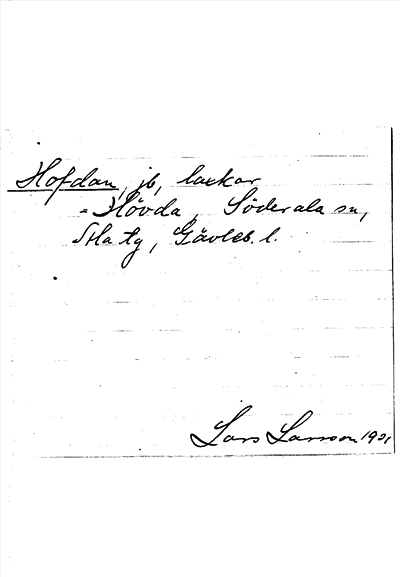 Hofdan, jb, backar
= Hövda, Söderala sn,
S Ha tg, Gävleb. l.
Lars Larsson 1921